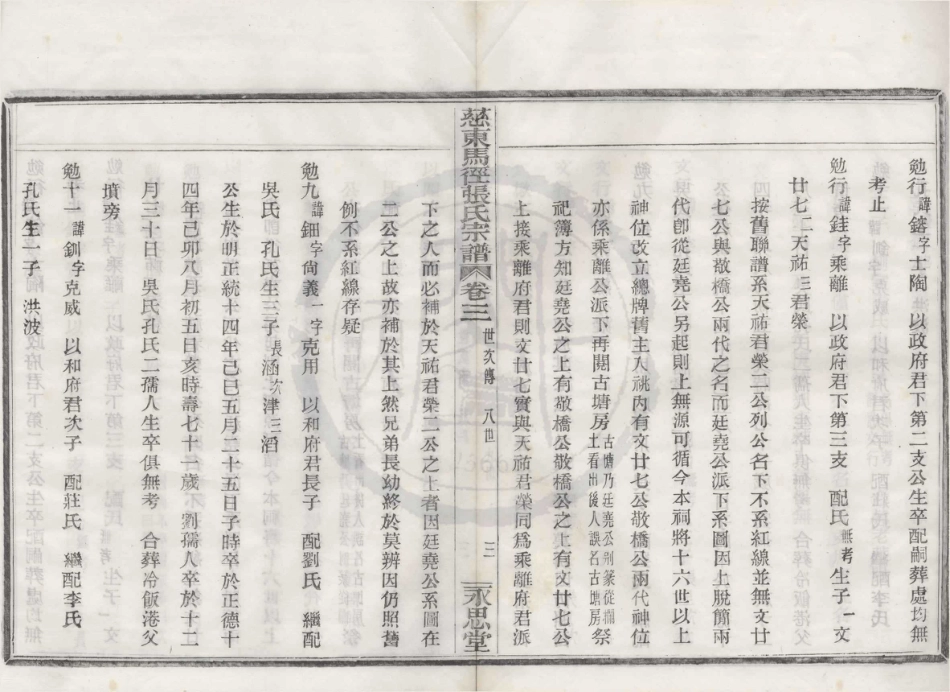 勉行諱鎔字士陶 以政府君下第二支公生卒配嗣葬處均無
考止
勉行諱銈字乘離 以政府君下第三支 配氏無考生子一文
廿七二天祐三君榮
按舊聯譜系天祐君榮二公列公名下不系紅線並無文廿
七公與敬橋公兩代之名而廷堯公派下系圖因上脫簡兩
代卽從廷堯公另起則上無源可循今本祠將十六世以上
神位改立總牌舊主入祧內有文廿七公敬橋公兩代神位
亦係乘離公派下再閱古塘房古塘乃廷堯公荆篆從土看出後人誤名古塘房祭
祀簿方知廷堯公之上有敬橋公敬橋公之上有文廿七公
上接乘離府君則文廿七實與天祐君榮同爲乘離府君派
慈東馬徑張氏宗譜 卷三 世次傳 八世 三 永思堂
下之人而必補於天祐君榮二公之上者因廷堯公系圖在
二公之上故亦補於其上然兄弟長幼終於莫辨因仍照舊
例不系紅線存疑
勉九諱鈿字尙義一字克用 以和府君長子 配劉氏 繼配
吳氏 孔氏生三子長涵次津三滔
公生於明正統十四年己巳五月二十五日子時卒於正德十
四年己卯八月初五日亥時壽七十一歲 劉孺人卒於十二
月三十日吳氏孔氏二孺人生卒俱無考 合葬冷飯港父
墳旁
勉十一諱釧字克威 以和府君次子 配莊氏 繼配李氏
孔氏生一子 洪波